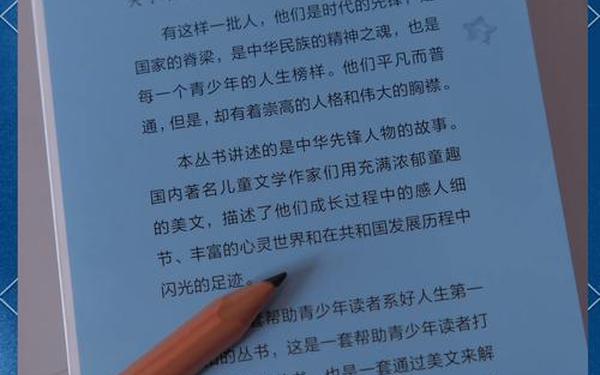 有这样一批人，他们是时代的先锋，
国家的脊梁，是中华民族的精神之魂，也是
每一个青少年的人生榜样。他们平凡而普
通，但是，却有着崇高的人格和伟大的胸襟。
本丛书讲述的是中华先锋人物的故事。
国内著名儿童文学作家们用充满浓郁童趣
的美文，描述了他们成长过程中的感人细
节、丰富的心灵世界和在共和国发展历程中
闪光的足迹。
套帮助青少年读者系好人生第一
的丛书，这是一套帮助青少年读者打
也是一套通过美文来解